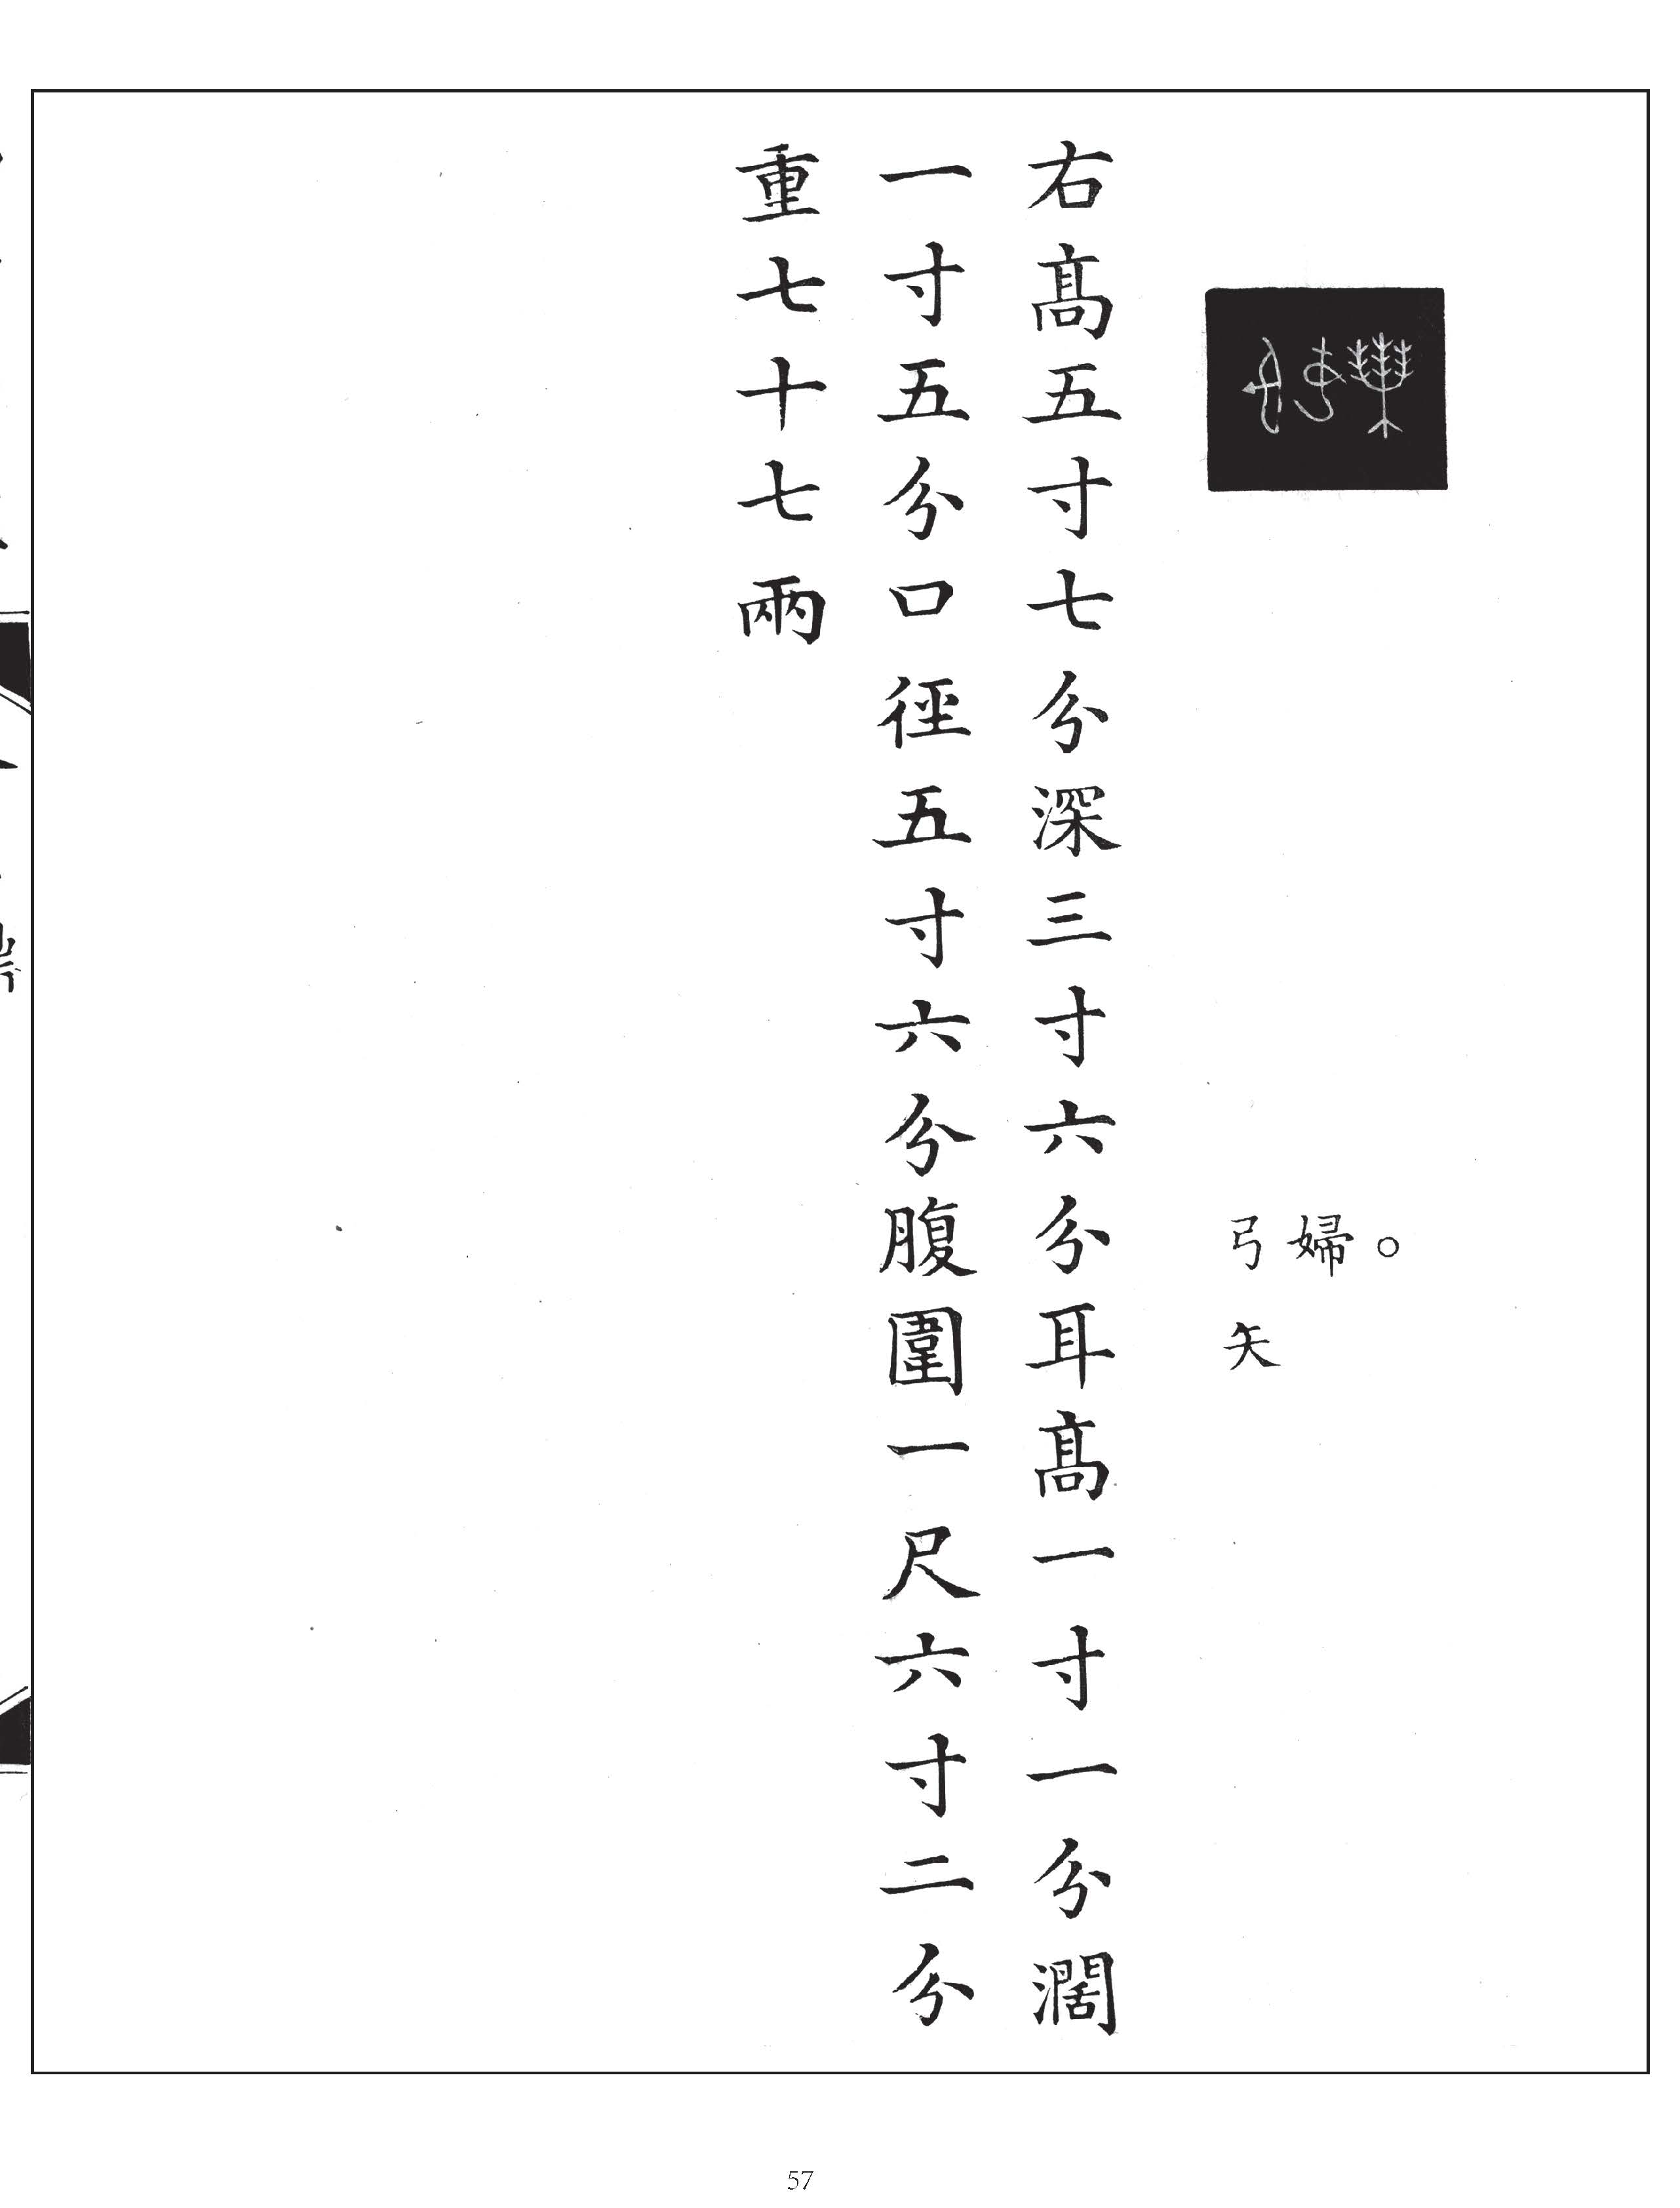 。
婦
弓矢
右高五寸七分深三寸六分耳高一寸一分濶
一寸五分口徑五寸六分腹圍一尺六寸二分
重七十七兩
57